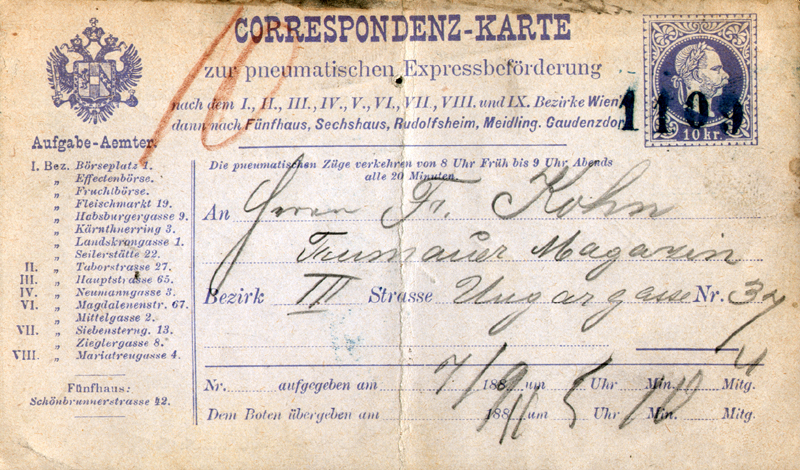 CORRESPONDENZ-KARTE
zur pneumatischen Expressbeförderung
nach dem I., II., III., IV., V., VI., VII., VIII. und IX. Bezirke Wien
dann nach Fünfhaus, Sechshaus, Rudolfsheim, Meidling. Gaudenzdorf
10 kr.
Aufgabe-Aemter.
I. Bez. Börseplatz 1.
„ Effectenbörse.
„ Fruchtbörse.
„ Fleischmarkt 19.
„ Habsburgergasse 9.
„ Kärnthnerring 3.
„ Landskrongasse 1.
„ Seilerstätte 22.
II. „ Taborstrasse 27.
III. „ Hauptstrasse 65.
IV. „ Neumanngasse 3.
VI. „ Magdalenenstr. 67.
„ Mittelgasse 2.
VII. „ Siebensterng. 13.
„ Zieglergasse 8.
VIII. „ Mariatreugasse 4.
Fünfhaus:
Schönbrunnerstrasse 42.
Die pneumatischen Züge verkehren von 8 Uhr Früh bis 9 Uhr Abends
alle 20 Minuten.
An Herrn Fr. Kohn
Trumauer Magazin
Bezirk III Strasse Ungargasse Nr. 37
Nr. aufgegeben am 7/9 188 um 5 Uhr Min. Mitg.
Dem Boten übergeben am 188 um 5 Uhr Min. Mitg.